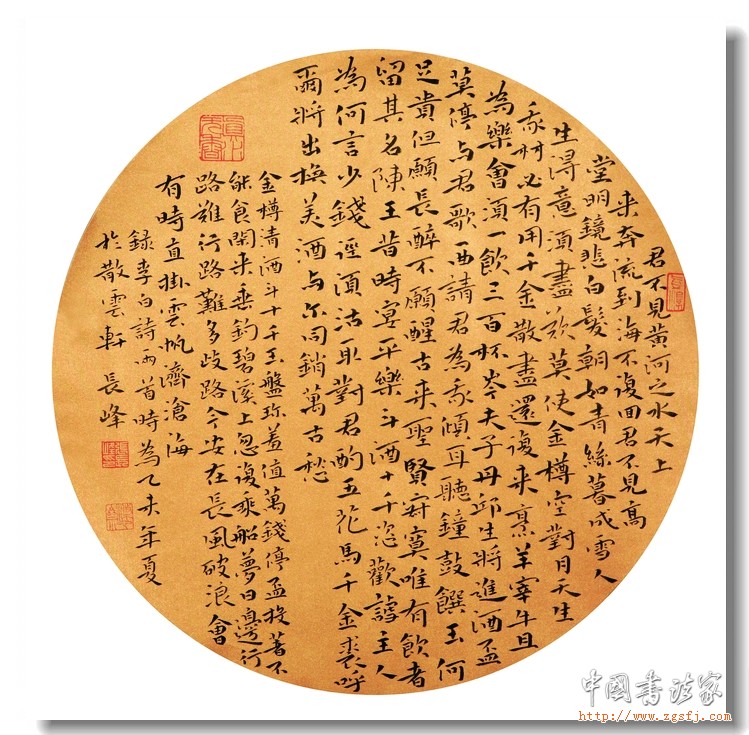 君不見黃河之水天上
来奔流到海不復回君不見高
堂明鏡悲白髮朝如青絲暮成雪人
生得意須盡欢莫使金樽空對月天生
我材必有用千金散盡還復来烹羊宰牛且
為樂會須一飲三百杯岑夫子丹邱生將進酒盃
莫停与君歌一曲請君為我傾耳聽鐘鼓饌玉何
足貴但願長醉不願醒古来聖賢寂寞唯有飲者
留其名陳王昔時宴平樂斗酒十千恣歡謔主人
為何言少錢逕須沽取對君酌五花馬千金裘呼
爾將出換美酒与尔同銷萬古愁
金樽清酒斗十千玉盤珍羞值萬錢停盃投箸不
能食閑来垂釣碧溪上忽復乘船夢日邊行
路難行路難多歧路今安在長風破浪會
有時直掛雲帆濟滄海
録李白詩两首時為乙未年夏
於散雲軒長峰
中國書法家
http://www.zgsfj.com